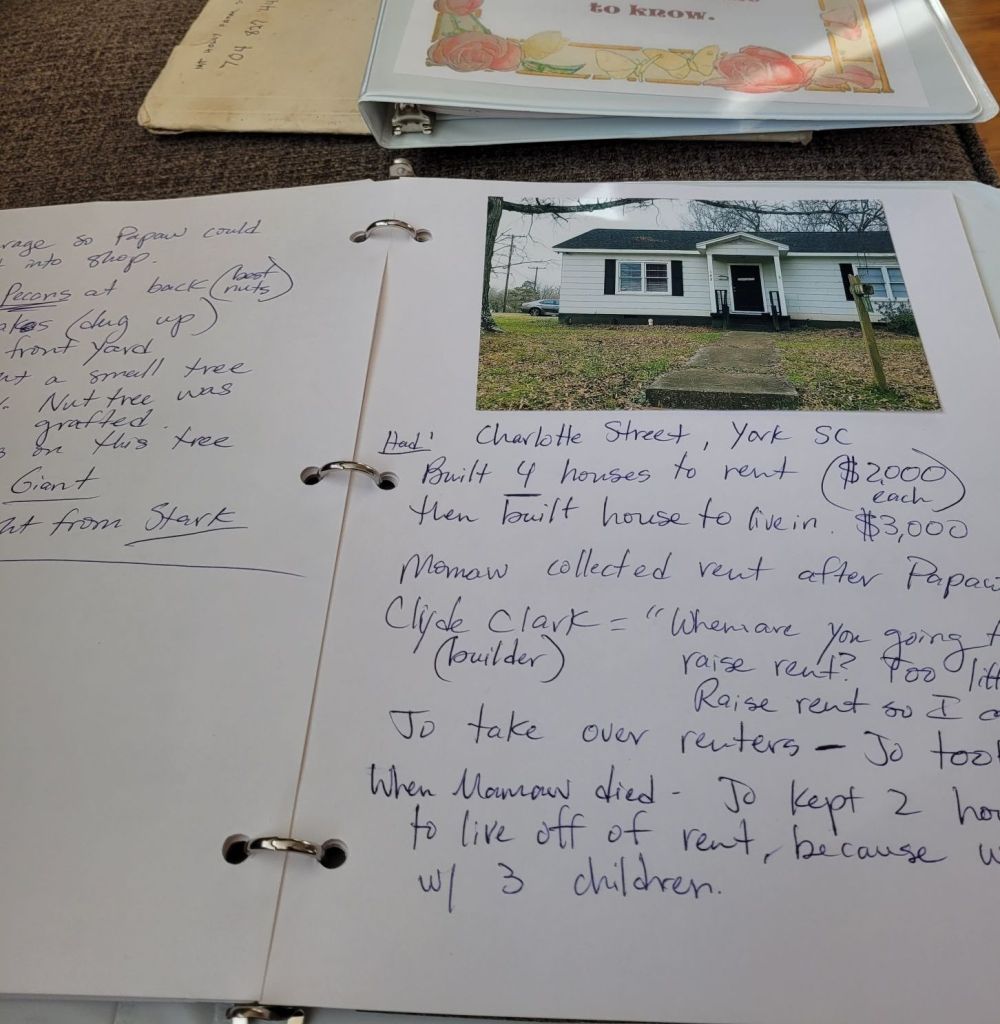 to know.
704 827
Papaw could
into shop.
Pecans at back (best nuts)
(dug up)
front yard
a small tree
Nut tree was
grafted.
on this tree
Giant
from Stark
Had' Charlotte Street, York SC
Built 4 houses to rent ($2,000 each)
then built house to live in. $3,000
Momaw collected rent after
Clyde Clark = "When are you going
(builder) raise rent? Too
Raise rent so I
Jo take over renters – Jo
When Mamaw died - Jo kept 2
to live off of rent, because
w/ 3 children.